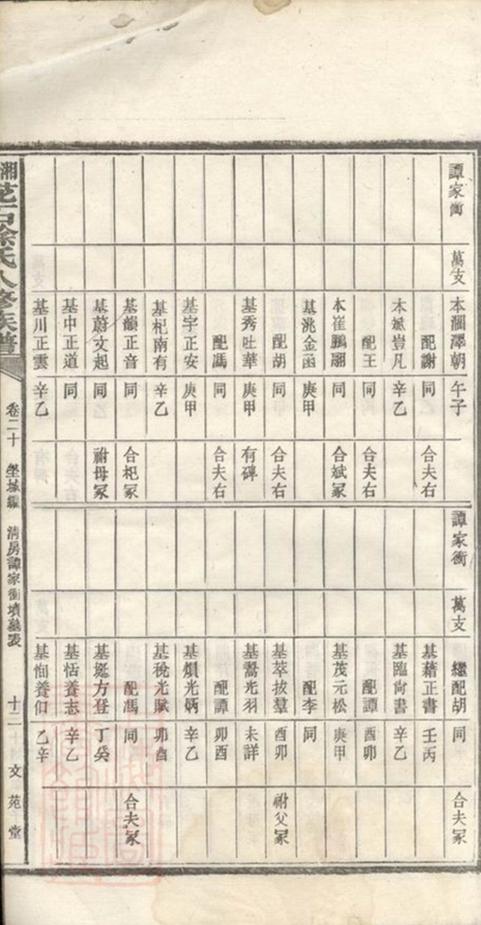 譚家衝 萬支 本澗澤朝 午子
配謝 同 合夫右
本斌豈凡 辛乙
配王 同 合夫右
本崔鵬翮 同 合斌冢
基洮金函 庚甲
配胡 同 合夫右
基秀吐華 庚甲 有碑
配馮 同 合夫右
基宇正安 庚甲
基杞南有 辛乙
基韻正音 同 合杞冢
基蔚文起 同 祔母冢
基中正道 同
基川正雲 辛乙
譚家衝 萬支 繼配胡 同 合夫冢
基藉正書 壬丙
基臨尙書 辛乙
配譚 酉卯
基茂元松 庚甲
配李 同
基萃拔羣 酉卯 祔父冢
基喬光羽 未詳
配譚 卯酉
基熉光炳 辛乙
基稅光賦 卯酉
配馮 同 合夫冢
基挻方登 丁癸
基恬養志 辛乙
基恂養 乙辛
湘 花石徐氏八修族譜
卷二十 塋域編 清房譚家衝墳墓表 十二 文苑堂